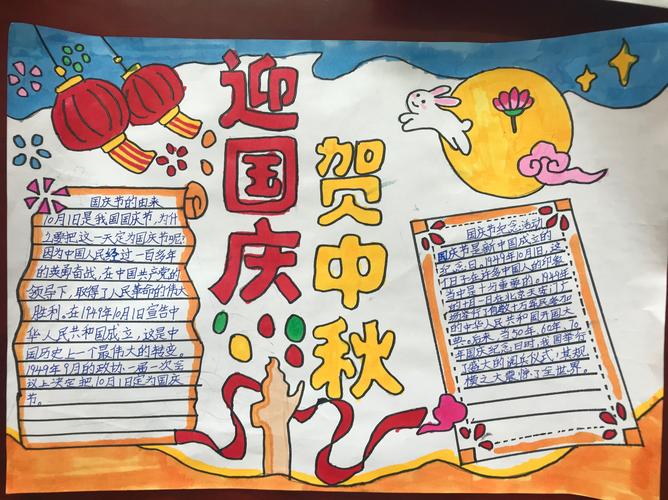 迎国庆
贺中秋
国庆节的由来
10月1日是我国国庆节,为什
么要把这一天定为国庆节呢?
因为中国人民经过一百多年
的英勇奋战,在中国共产党的
领导下,取得了人民革命的伟大
胜利。在1949年10月1日宣告中
华人民共和国成立,这是中
国历史上一个最伟大的转变。
1949年9月的政协一届一次会
议上决定把10月1日定为国庆
节。
国庆节纪念活动
国庆节是新中国成立的
纪念日,1949年10月1日,这
个日子在许多中国人的印象
当中是十分重要的。1949年
的十月一日在北京天安门广
场举行了有数十万军民参加
的中华人民共和国开国大
典。后来,在50年、60年、70
年国庆纪念日时,我国举行
了盛大的阅兵仪式,其规
模之大震惊了全世界。